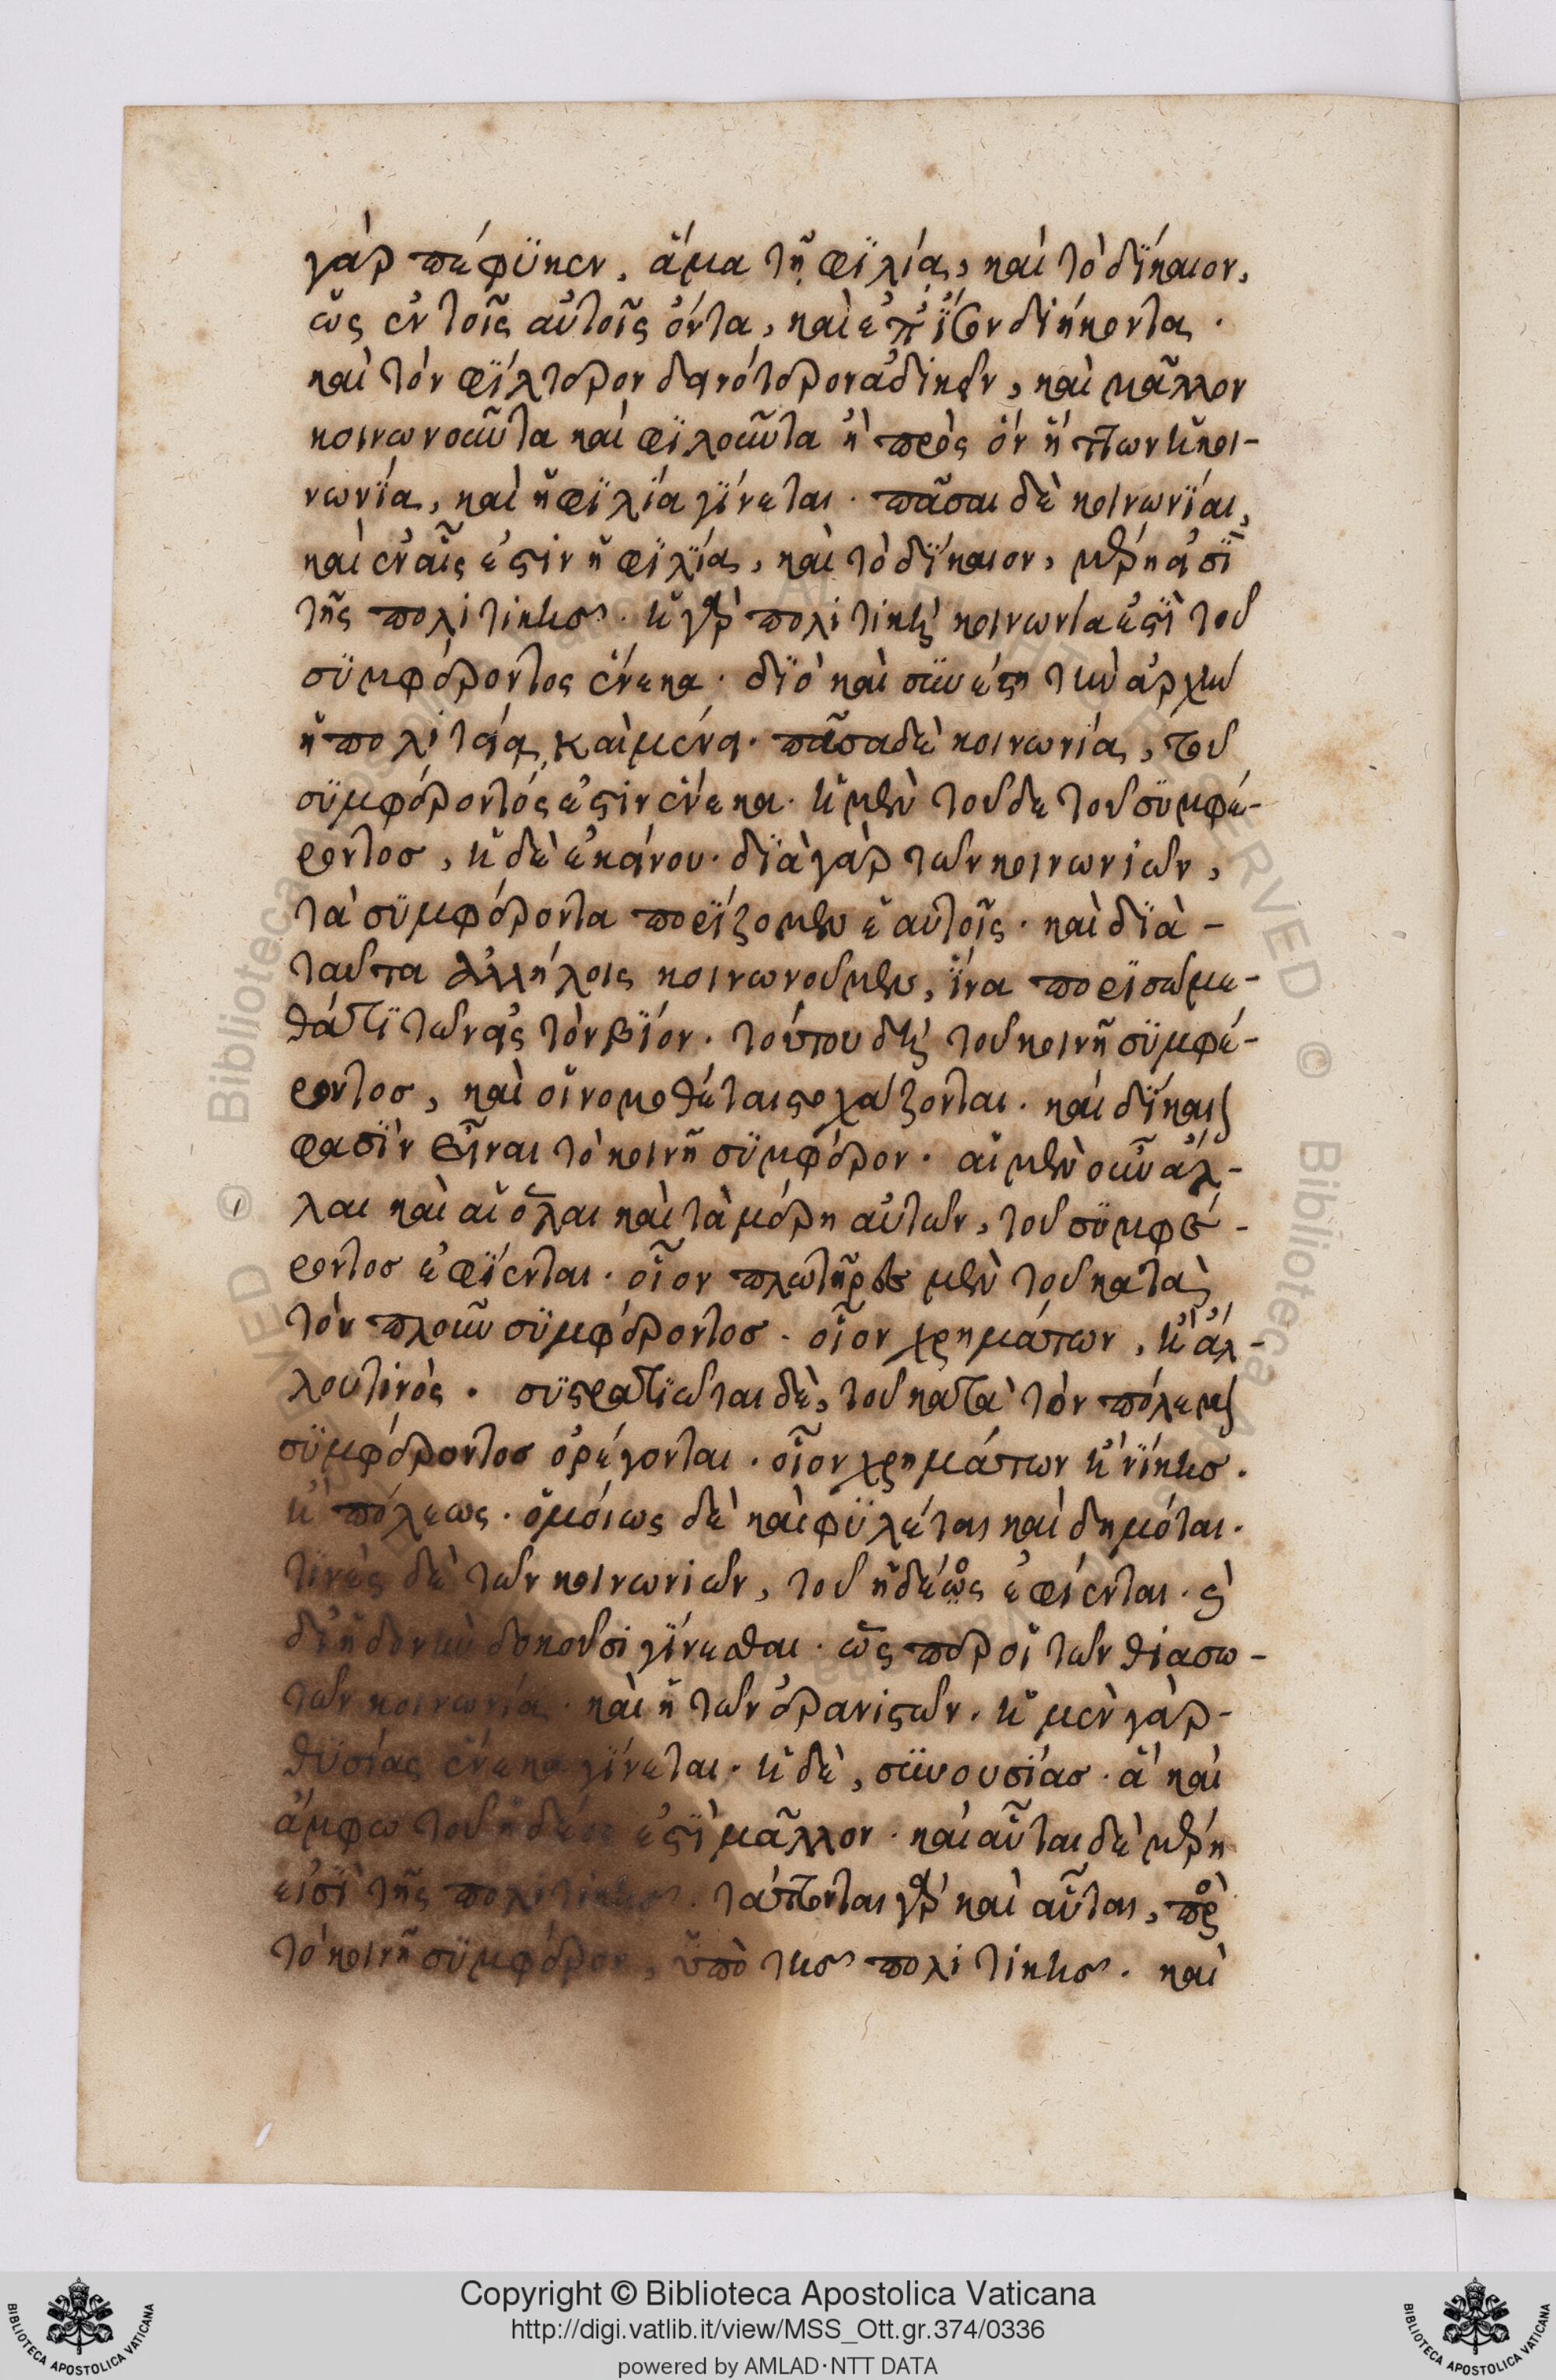 γὰρ πέφϋκεν, ἅμα τῇ φϊλία, καὶ τὸ δίκαιον,
ὡς ἐν τοῖς αὐτοῖς ὄντα, καὶ ἐπ' ἴσον διήκοντα.
καὶ τὸν φΐλτερον δεινότερον ἀδικεῖν, καὶ μᾶλλον
κοινωνοῦντα καὶ φϊλοῦντα ἢ πρὸς ὃν ἥττων ἡ κοι-
νωνΐα, καὶ ἡ φϊλία γΐνεται. πᾶσαι δὲ κοινωνΐαι,
καὶ ἐν αἷς ἐστὶν ἡ φϊλΐα, καὶ τὸ δΐκαιον, μέρη εἰσῒ
τῆς πολιτικῆς. ἡ γὰρ πολιτικὴ κοινωνία ἐστῒ τοῦ
σϋμφέροντος ἕνεκα. δϊὸ καὶ συνέστη τὴν ἀρχὴν
ἡ πολιτεία, καὶ μένει. πᾶσα δὲ κοινωνία, τοῦ
σϋμφέροντός ἐστιν ἕνεκα. ἡ μὲν τοῦδε τοῦ σϋμφέ-
ροντος, ἡ δὲ ἐκείνου. δϊὰ γὰρ τῶν κοινωνιῶν,
τὰ σϋμφέροντα πορΐζομεν ἑαυτοῖς. καὶ δϊὰ -
ταῦτα ἀλλήλοις κοινωνοῦμεν, ἵνα πορϊσώμε-
θά τϊ τῶν εἰς τὸν βΐον. τούτου δὴ τοῦ κοινῇ σϋμφέ-
ροντος, καὶ οἱ νομοθέται στοχάζονται. καὶ δΐκαιον
φασῒν εἶναι τὸ κοινῇ σϋμφέρον. αἱ μὲν οὖν ἄλ-
λαι καὶ αἱ ὅλαι καὶ τὰ μέρη αὐτῶν, τοῦ σϋμφέ-
ροντος ἐφΐενται. οἷον πλωτῆρες μὲν τοῦ κατὰ
τὸν πλοῦν σϋμφέροντος. οἷον χρημάτων, ἢ ἄλ-
λου τινὸς. σϋστρατϊῶται δὲ, τοῦ κατὰ τὸν πόλεμον
σϋμφέροντος ὀρέγονται. οἷον χρημάτων ἢ νΐκης.
ἢ πόλεως. ὁμοίως δὲ καὶ φϋλέται καὶ δημόται.
τινὲς δὲ τῶν κοινωνιῶν, τοῦ ἡδέως ἐφίενται. καὶ
δι' ἡδονὴν δοκοῦσι γΐνεσθαι. ὥσπερ οἱ τῶν θιασω-
τῶν κοινωνία. καὶ ἡ τῶν ἐρανιστῶν. ἡ μὲν γὰρ -
θϋσίας ἕνεκα γΐνεται. ἡ δὲ, συνουσΐας. ἃ καὶ
ἄμφω τοῦ ἡδέος ἐστῒ μᾶλλον. καὶ αὗται δὲ μέρη
εἰσῒ τῆς πολιτικῆς. τάττονται γὰρ καὶ αὗται, πρὸς
τὸ κοινῇ σϋμφέρον, ὑπὸ τῆς πολιτικῆς. καὶ
Copyright © Biblioteca Apostolica Vaticana
http://digi.vatlib.it/view/MSS_Ott.gr.374/0336
powered by AMLAD·NTT DATA